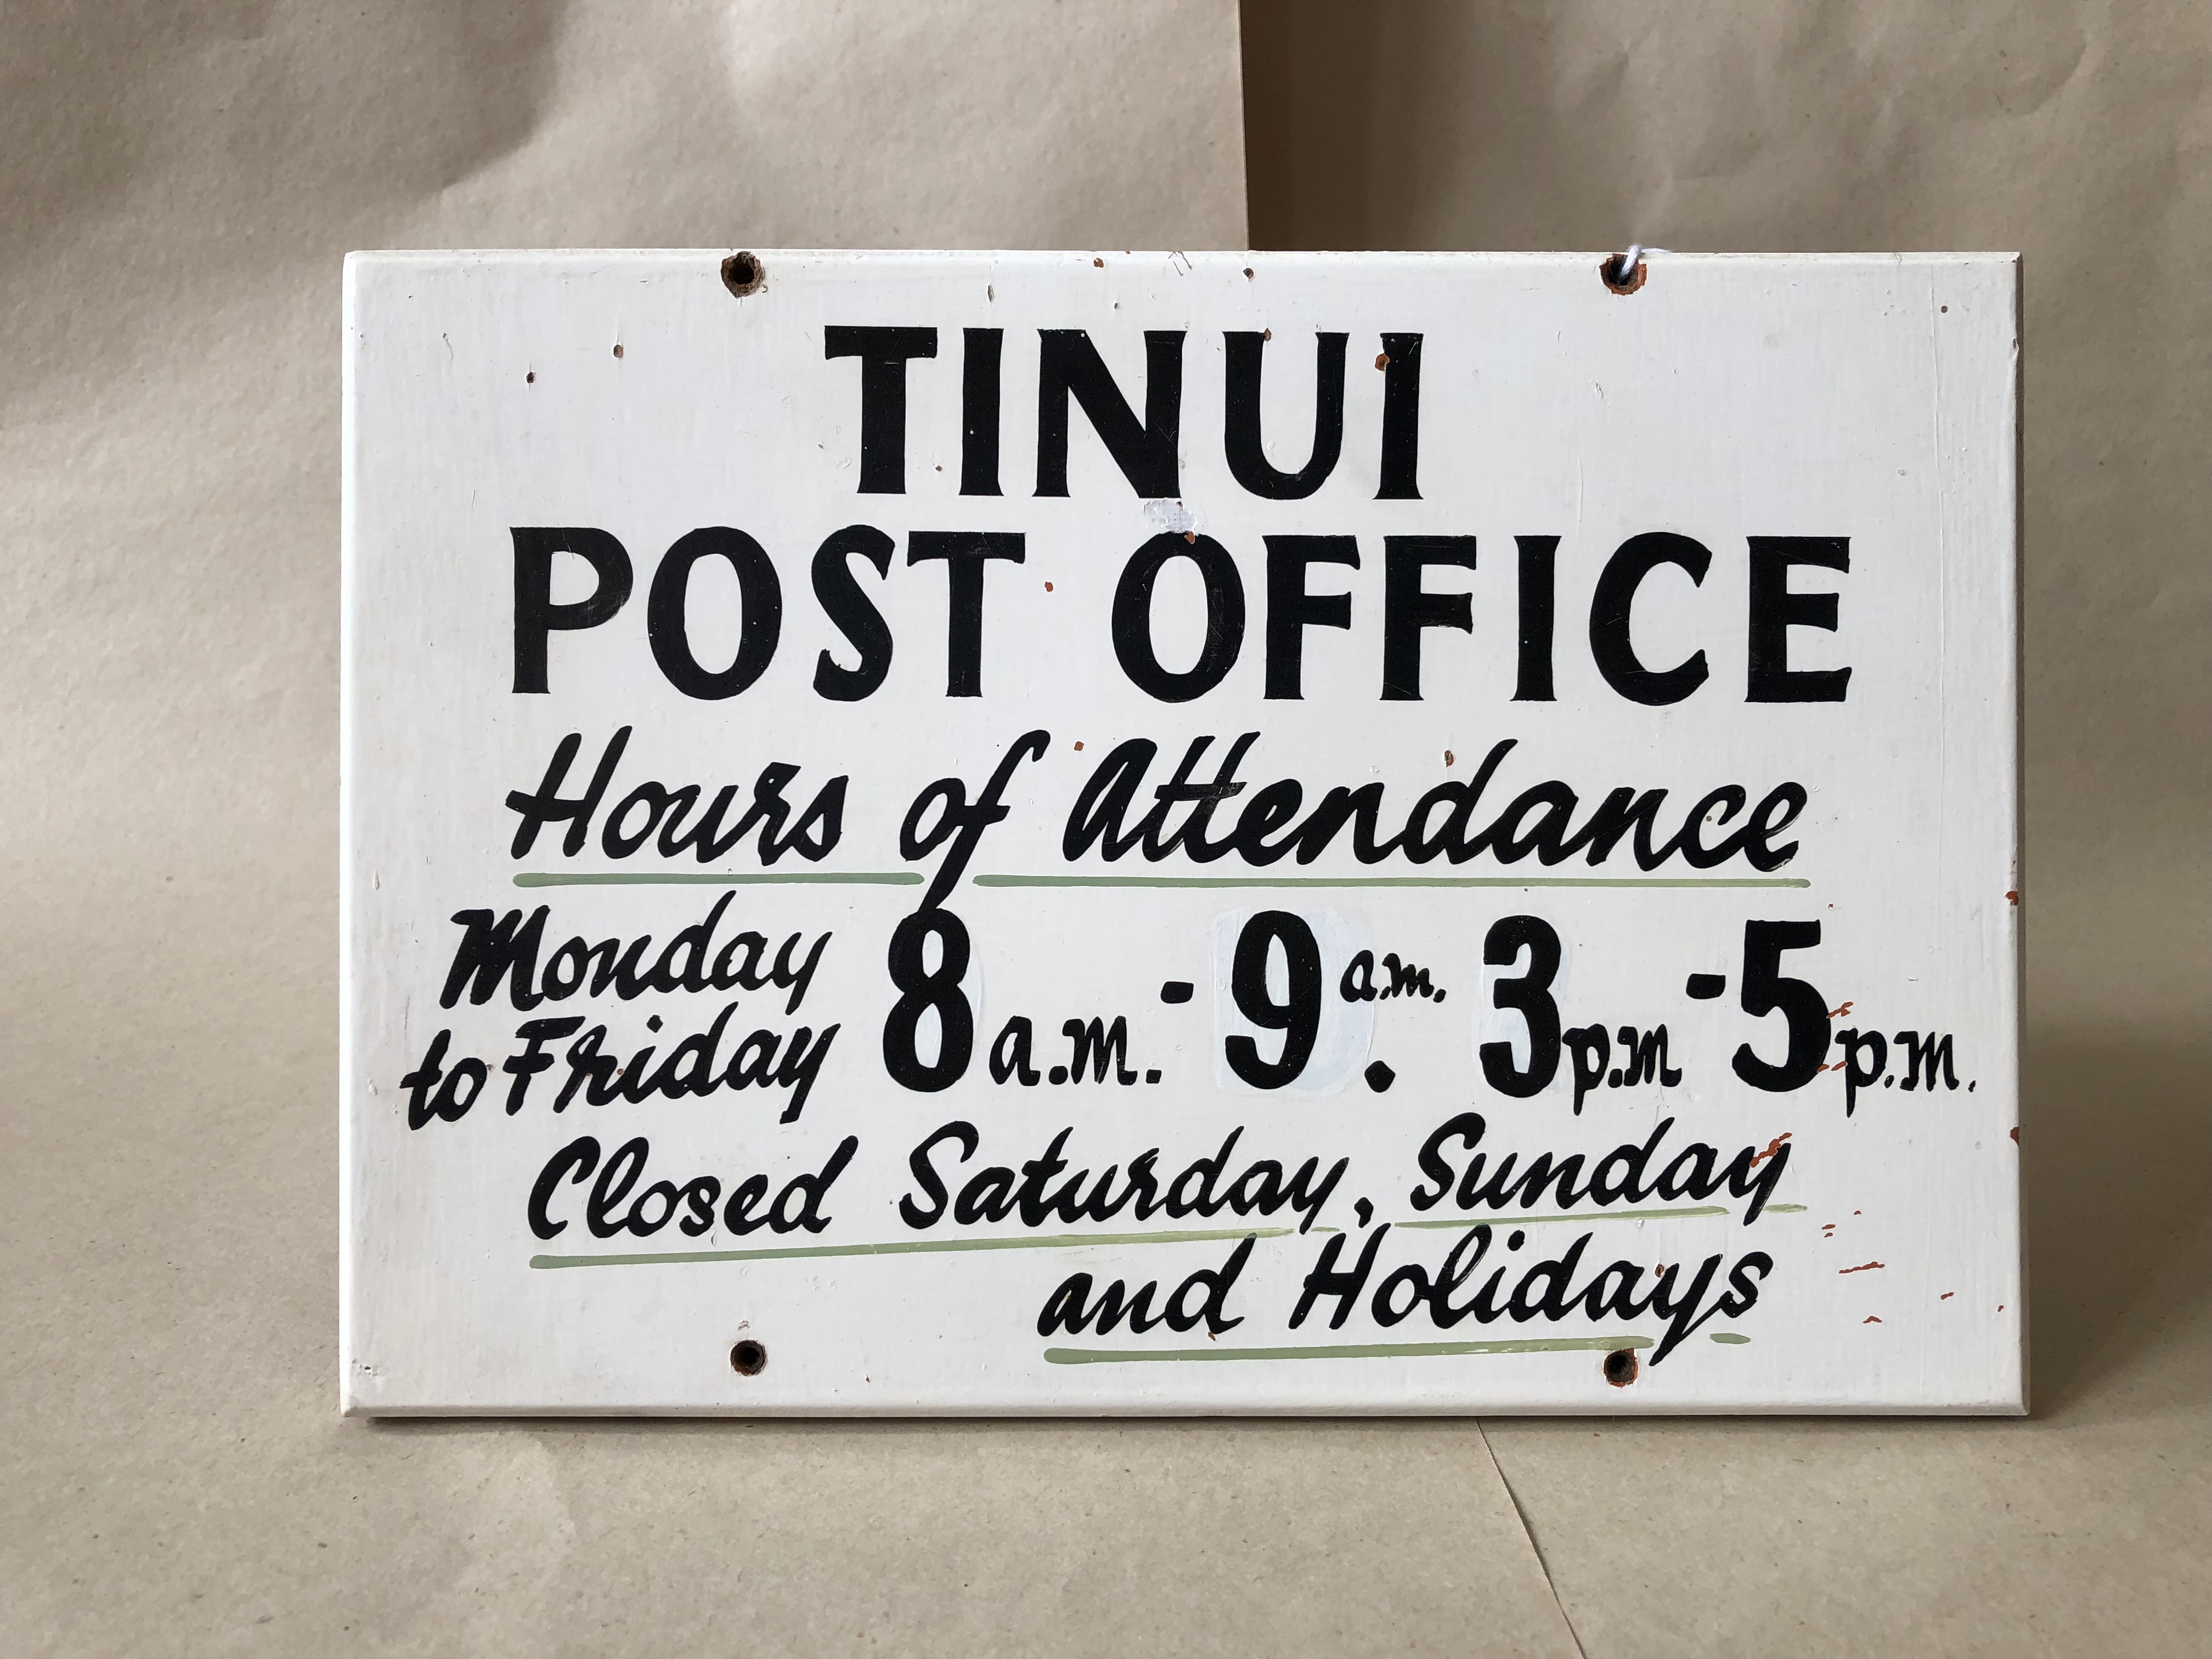 TINUI
POST OFFICE
Hours of Attendance
Monday
to Friday 8 a.m. - 9 a.m. . 3 p.m - 5 p.m.
Closed Saturday, Sunday
and Holidays